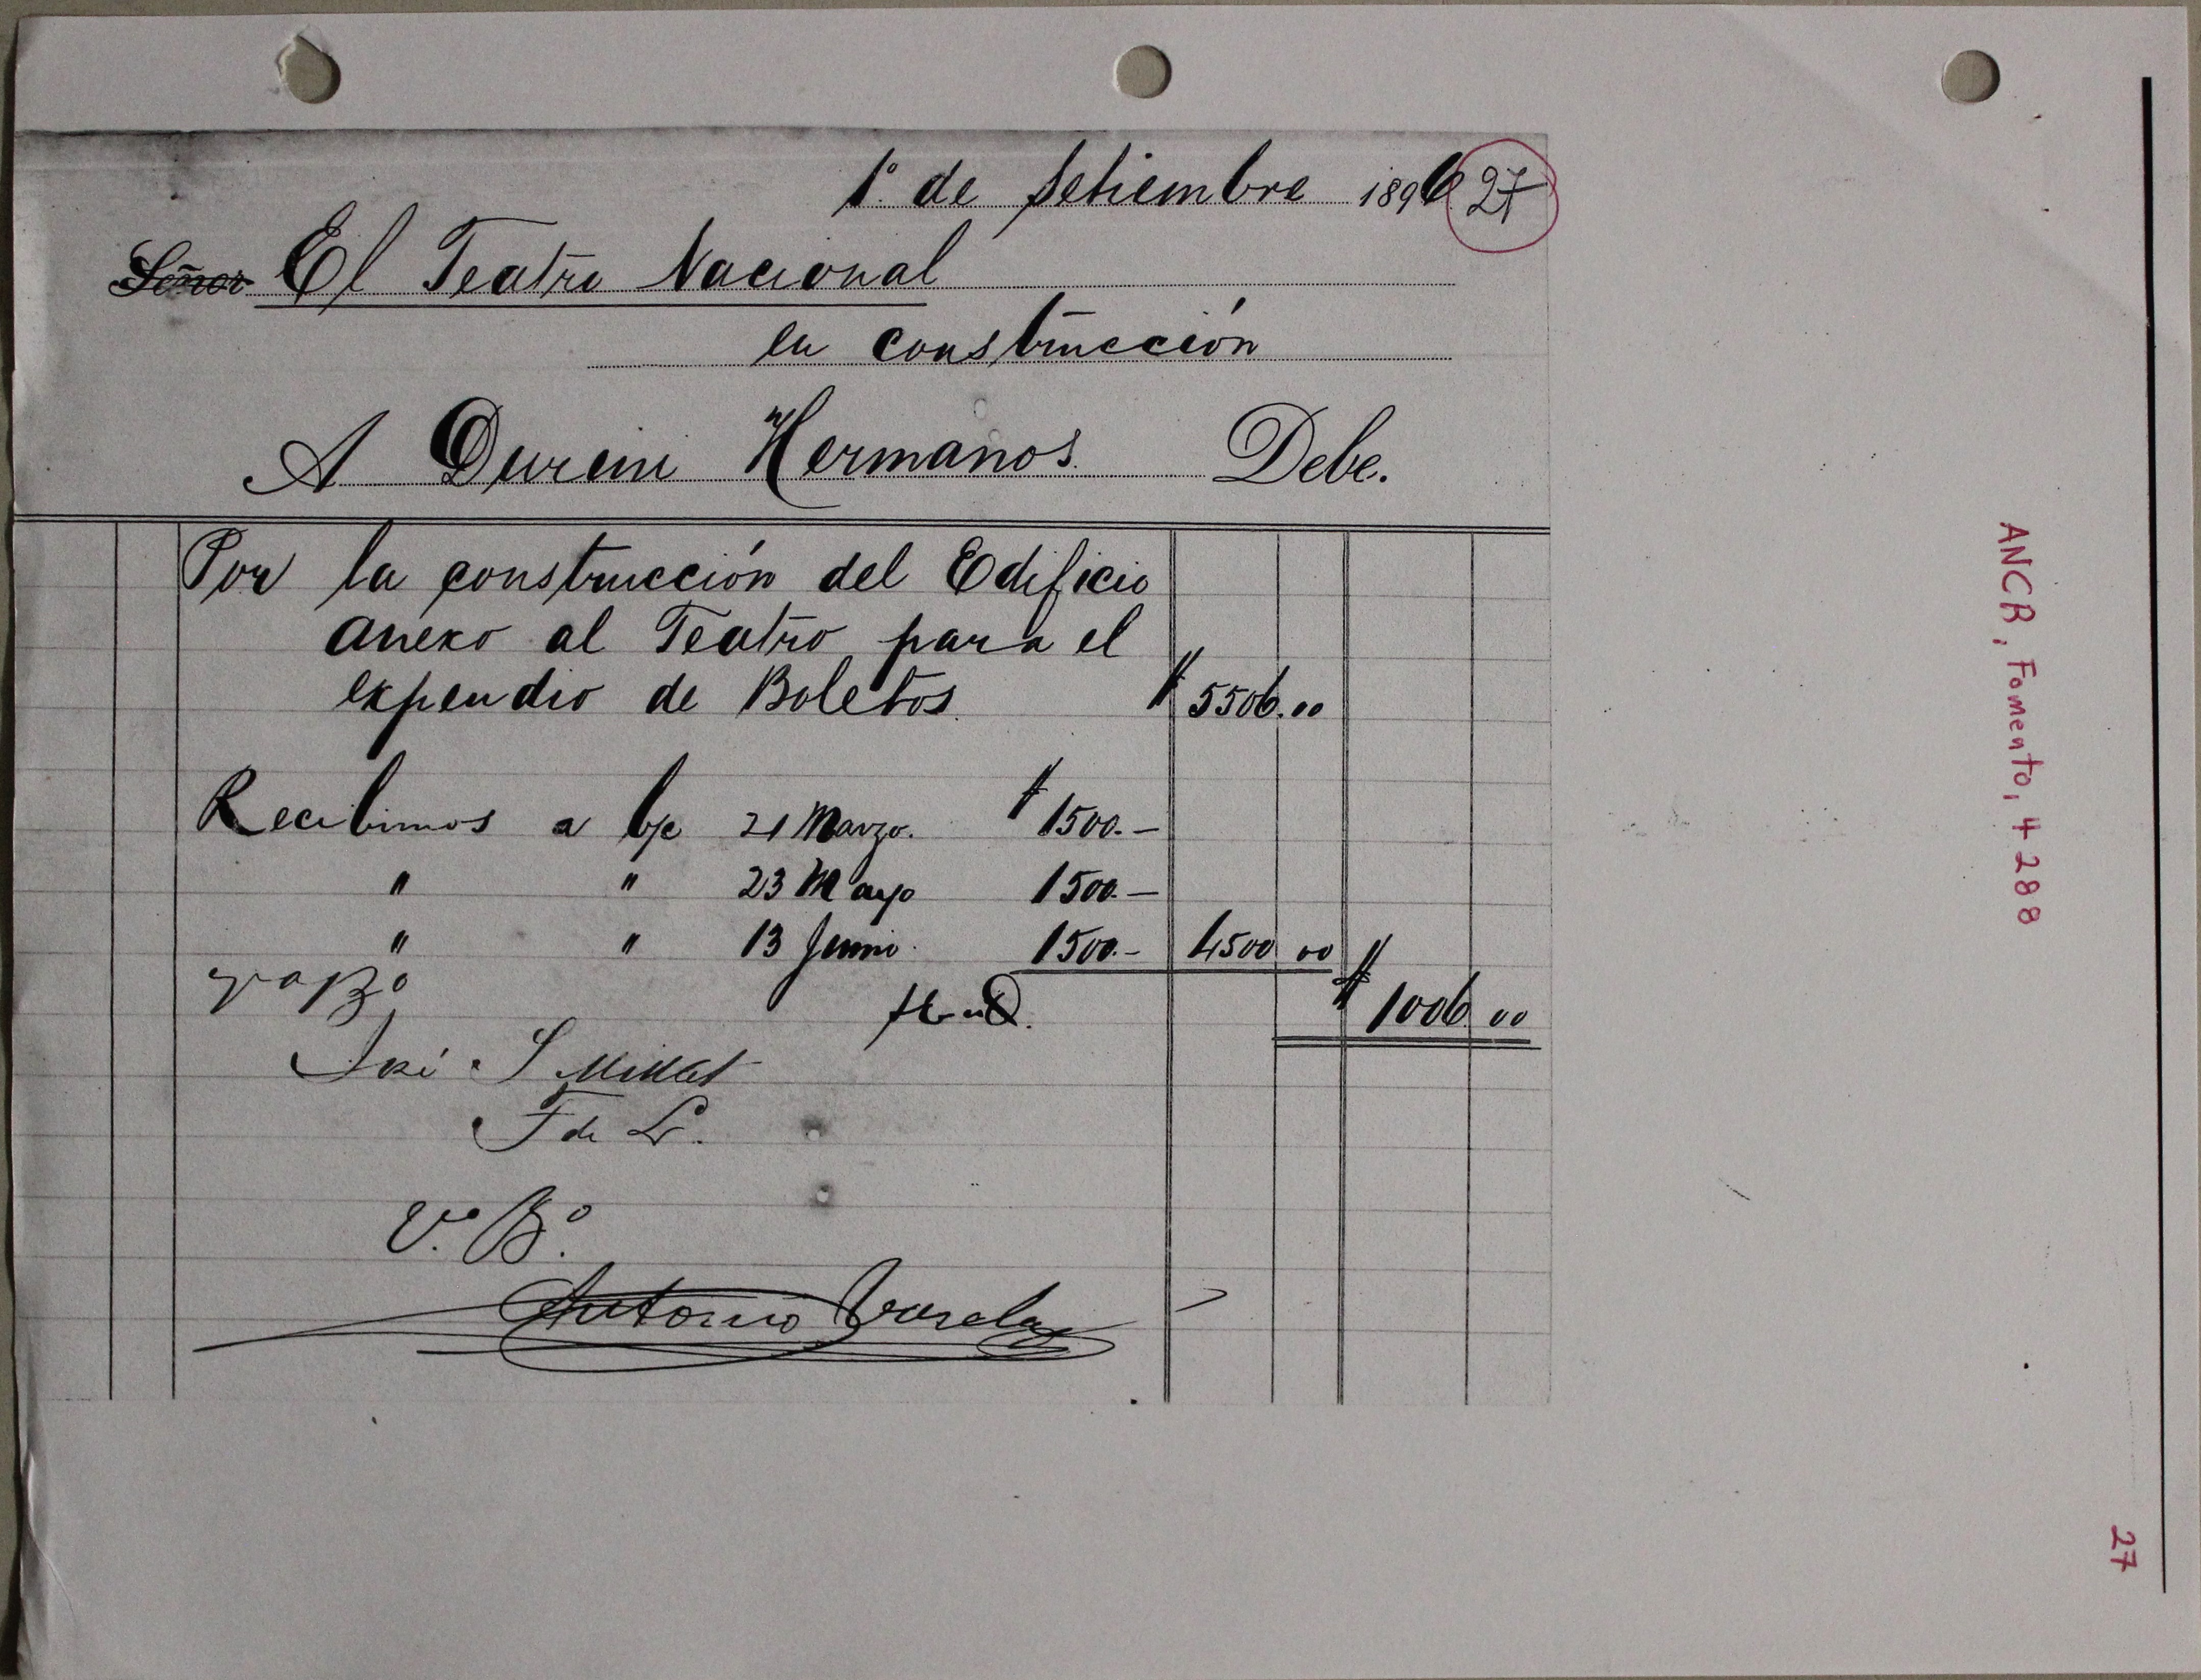 1º de Setiembre 1896 27
Señor El Teatro Nacional
en construcción
A Durini Hermanos. Debe.
Por la construcción del Edificio
anexo al Teatro para el
expendio de Boletos. $ 5506.00
Recibimos a b/c 21 Marzo. $ 1500.-
" " 23 Mayo 1500.-
" " 13 Junio. 1500.- 4500 00
$ 1006 00
VºBº
F de L.
V.º B.º
Antonio Varela
ANCR, Fomento, 4288
27